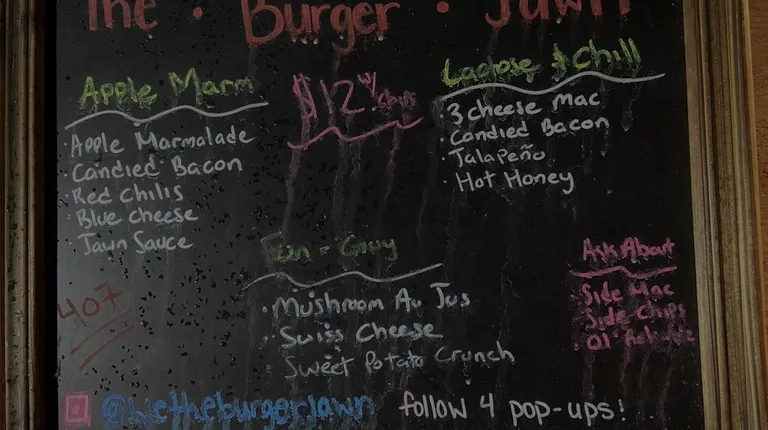 The · Burger · Jawn
Apple Marm
Apple Marmalade
Candied Bacon
Red Chilis
Blue cheese
Jawn Sauce
$12 w/ chips
Lactose & Chill
3 cheese Mac
Candied Bacon
Jalapeño
Hot Honey
Fun - Guy
Mushroom Au Jus
Swiss Cheese
Sweet Potato Crunch
Ask About
Side Mac
Side Chips
Ol'
407
follow 4 pop-ups!